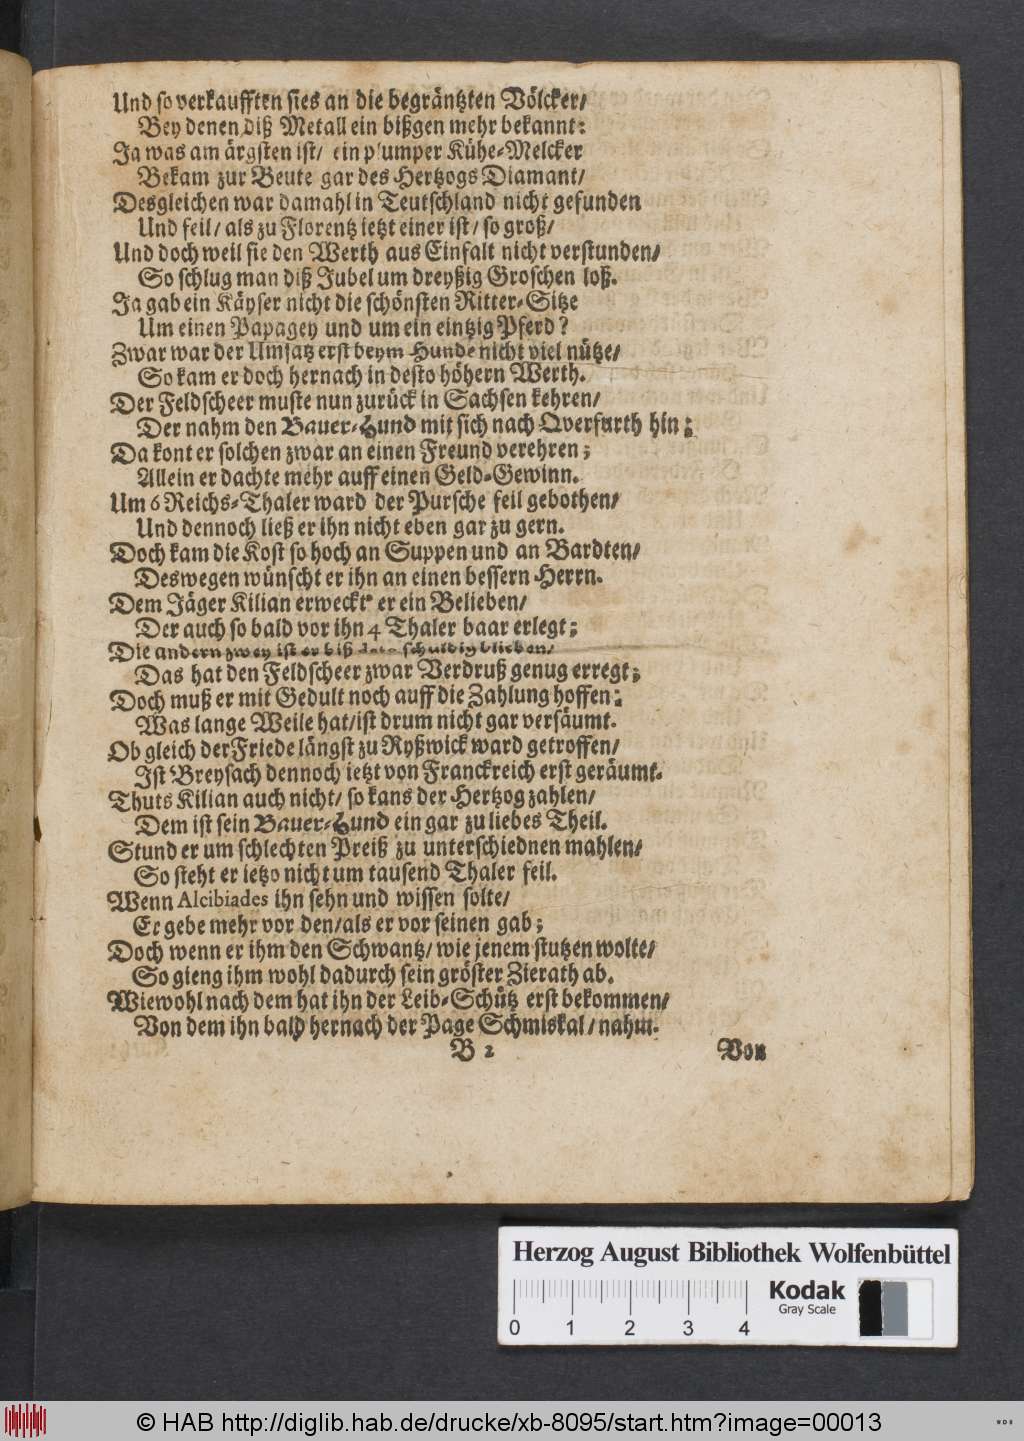 Und so verkaufften sies an die begräntzten Völcker/
Bey denen diß Metall ein bißgen mehr bekannt:
Ja was am ärgsten ist/ ein plumper Kühe-Melcker
Bekam zur Beute gar des Hertzogs Diamant/
Desgleichen war damahl in Teutschland nicht gefunden
Und feil/ als zu Florentz ietzt einer ist/ so groß/
Und doch weil sie den Werth aus Einfalt nicht verstunden/
So schlug man diß Jubel um dreyßig Groschen loß.
Ja gab ein Käyser nicht die schönsten Ritter-Sitze
Um einen Papagey und um ein eintzig Pferd?
Zwar war der Umsatz erst beym Hunde nicht viel nütze/
So kam er doch hernach in desto höhern Werth.
Der Feldscheer muste nun zurück in Sachsen kehren/
Der nahm den Bauer-Hund mit sich nach Qverfurth hin;
Da kont er solchen zwar an einen Freund verehren;
Allein er dachte mehr auff einen Geld-Gewinn.
Um 6 Reichs-Thaler ward der Pursche feil gebothen/
Und dennoch ließ er ihn nicht eben gar zu gern.
Doch kam die Kost so hoch an Suppen und an Bardten/
Deswegen wünscht er ihn an einen bessern Herrn.
Dem Jäger Kilian erweckt er ein Belieben/
Der auch so bald vor ihn 4 Thaler baar erlegt;
Die andern zwey ist er biß dato schuldig blieben/
Das hat den Feldscheer zwar Verdruß genug erregt;
Doch muß er mit Gedult noch auff die Zahlung hoffen;
Was lange Weile hat/ ist drum nicht gar versäumt.
Ob gleich der Friede längst zu Ryßwick ward getroffen/
Ist Breysach dennoch ietzt von Franckreich erst geräumt.
Thuts Kilian auch nicht/ so kans der Hertzog zahlen/
Dem ist sein Bauer-Hund ein gar zu liebes Theil.
Stund er um schlechten Preiß zu unterschiednen mahlen/
So steht er ietzo nicht um tausend Thaler feil.
Wenn Alcibiades ihn sehn und wissen solte/
Er gebe mehr vor den/ als er vor seinen gab;
Doch wenn er ihm den Schwantz/ wie jenem stutzen wolte/
So gieng ihm wohl dadurch sein gröster Zierath ab.
Wiewohl nach dem hat ihn der Leib-Schütz erst bekommen/
Von dem ihn bald hernach der Page Schmiskal/ nahm.
B 2 Von
Herzog August Bibliothek Wolfenbüttel
0 1 2 3 4
Kodak
Gray Scale
© HAB http://diglib.hab.de/drucke/xb-8095/start.htm?image=00013